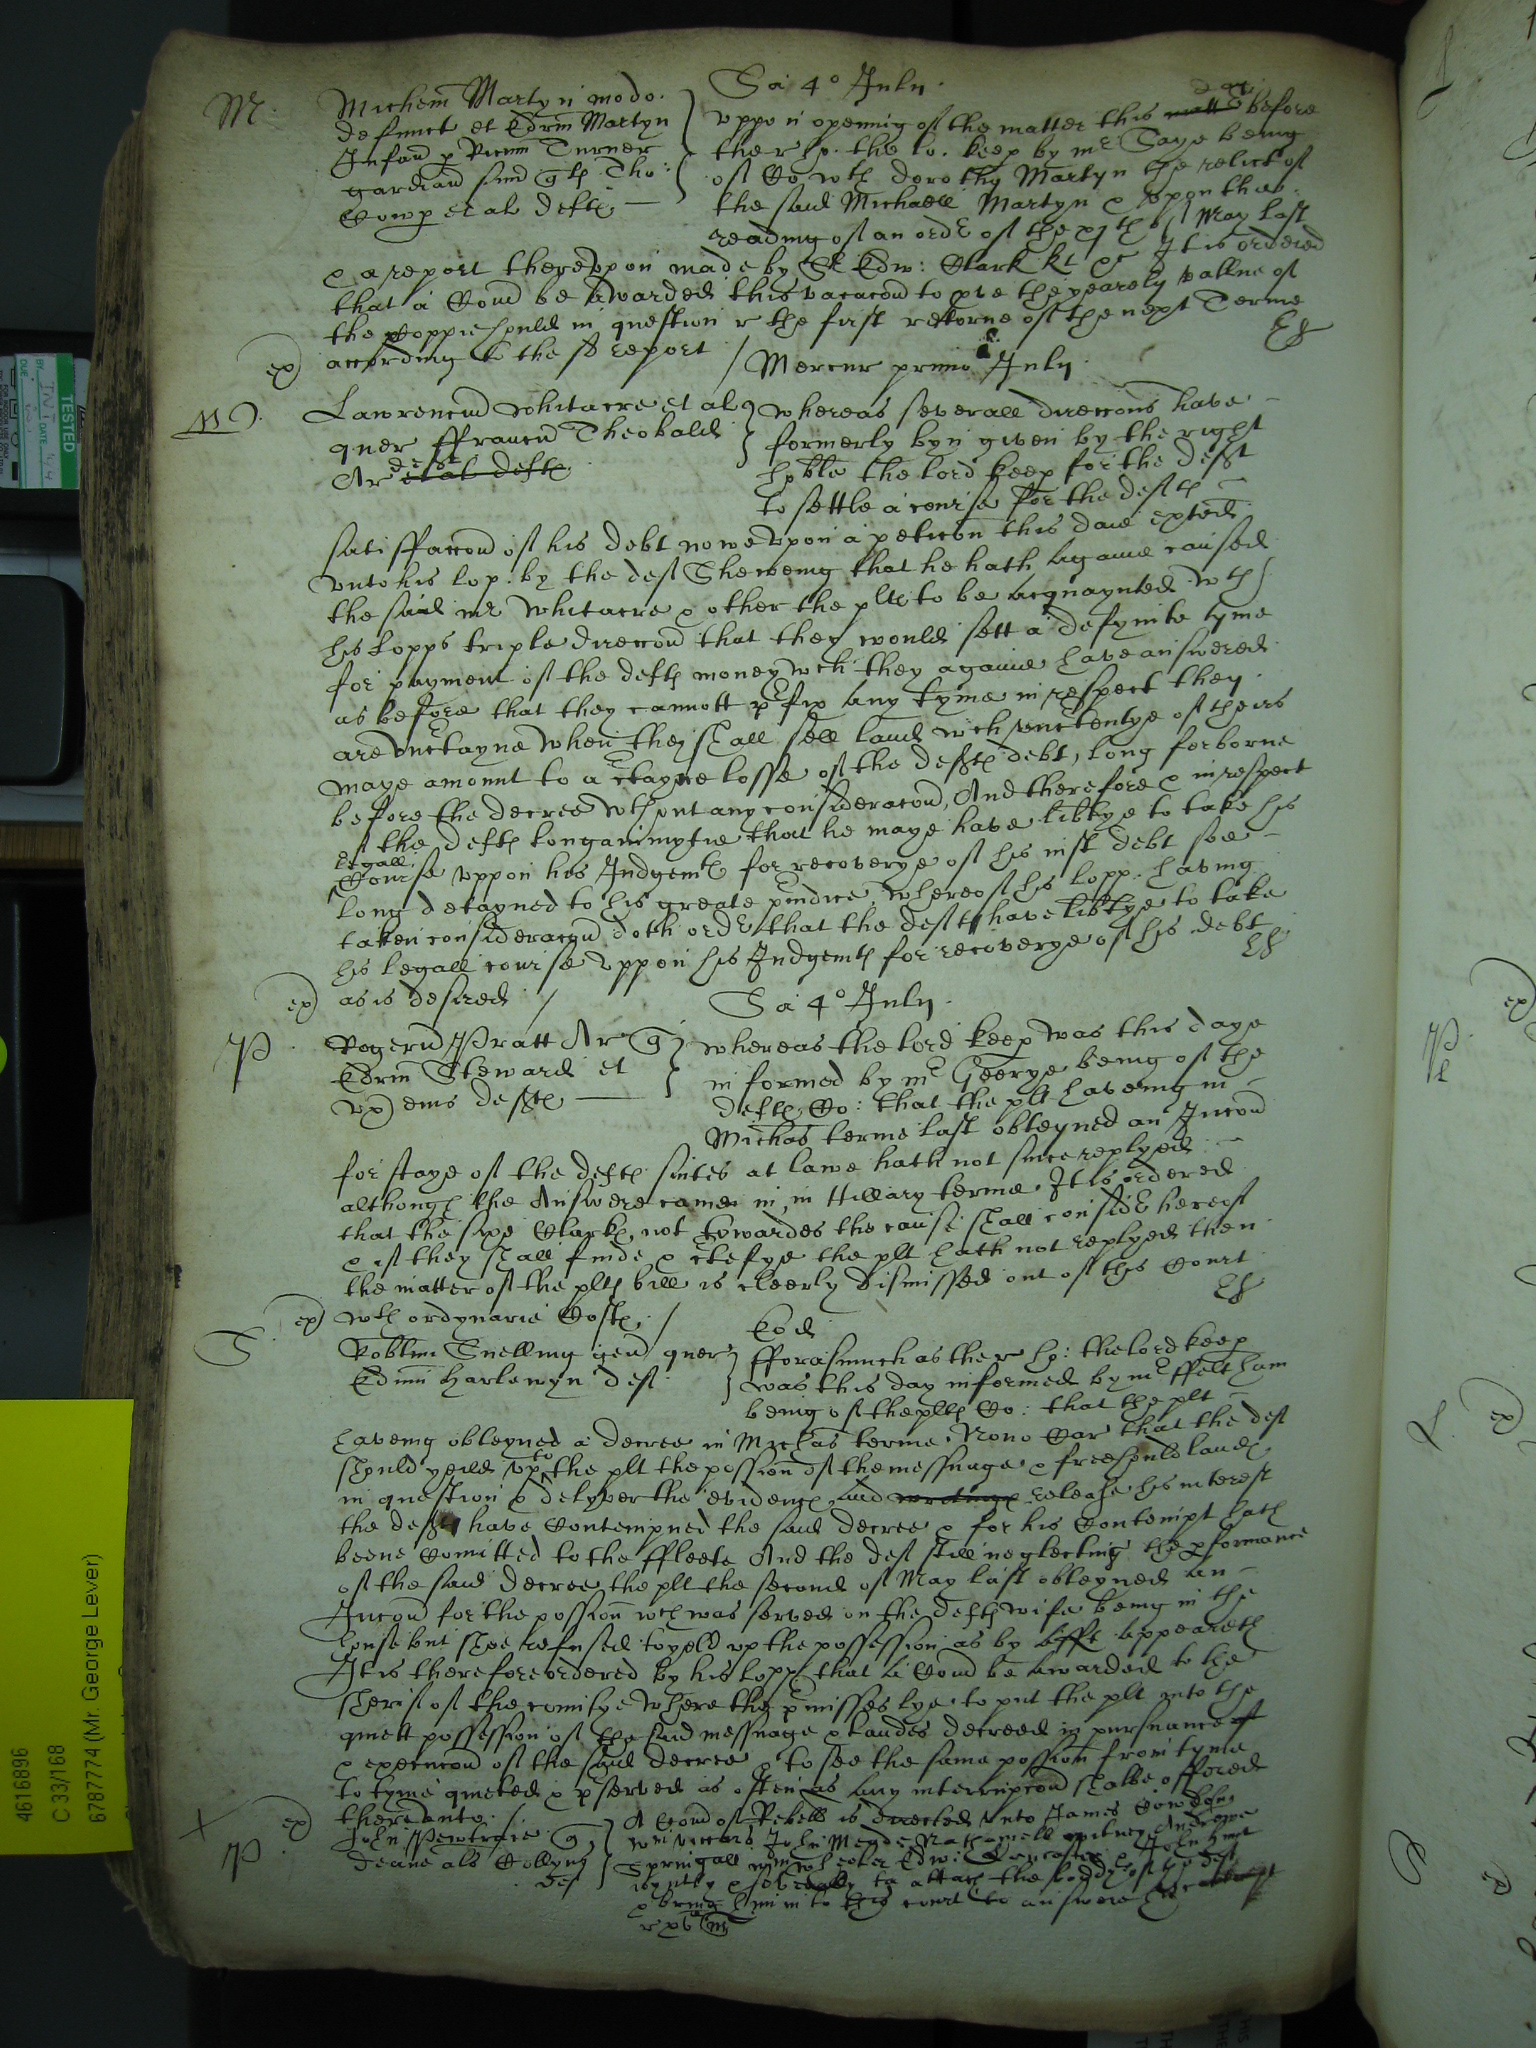 Sa 4o July
M. Michem Martyn modo
defunct et Edrm Martyn
Infans p Ricum Turner
gardian suu qts Tho:
Cowp et al defts
uppon opening of the matter this matt day before
the r ho. the lo. keep by mr Saye being
of Co wth dorothy Martyn the relict of
the said Michaell Martyn & upon the
reading of an ordr of the xjth of May last
& a report thereupon made by Sr Edw: Clark kt &c It is ordered
that a Comd be awarded this vacacon to pve the yearely vallue of
the Coppiehould in question r the first retorne of the next Terme
ex) according to the sd report /
Mercur primo July
W. Lawrencius Whitacre et al
quer ffranciu Theobald
Ar et al defts deft
whereas severall direccons have
formerly byn given by the right
hoble the lord keep for the deft
to settle a course for the defts
satisfaccon of his debt nowe upon a peticon this daie exted
unto his lop. by the deft Sheweing that he hath againe caused
the said mr Whitacre & other the plts to be acquaynted wth
his lopps triple direccon that they would sett a defynite tyme
for payment of the defts money wch they againe have answered
as before that they cannott pfix any tyme in respect they
are uncteyne when they shall sell land wch unctentye of theirs
maye amount to a cteyne losse of the defts debt, long forborne
before the decree wthout any consideracon, And therefore & in respect
of the defts longanimytie that he maye have libtye to take his
legall
Course uppon his Judgemt for recoverye of his iust debt soe
long detayned to his greate piudice, whereof his lopp. having
taken consideracon doth ordr that the deft have libtye to take
his legall course uppon his Judgemt for recoverye of his debt
ex) as is desired /
Sa 4o July
P. Rogerus Pratt Ar q
Edrm Steward et
ux) eius defts
whereas the lord keep was this daye
informed by mr George being of the
defts Co: that the plt haveing in
Michas terme last obteyned an Iniccon
for staye of the defts suites at lawe hath not since replyed
although the Answere came in, in Hillary terme It is ordered
that the sixe Clarks not towardes the cause shall considr hereof
& if they shall finde & ctefye the plt hath not replyed then
the matter of the plts bill is cleerly dismissed out of this Court
ex) wth ordynarie Costs. /
Eod
S. Robtus Snelling gen quer
Edmu Harlewyn deft
fforasmuch as the r ho: the lord keep
was this day informed by mr ffeltham
being of the plts Co: that the plt
haveing obteyned a decree in Michas terme Nono Car that the deft
should yeild up to the plt the possion of the messuage & freehould lands
in question & delyver the evidence and writinge release his interest
the deft have Contempned the said decree & for his Contempt hath
beene Comitted to the ffleete And the deft still neglecting the pformance
of the said decree the plt the second of May last obteyned an
Iniccon for the possion wch was served on the defts wife being in the
house but shee refused to yeld up the possession as by afft appeareth
It is therefore ordered by his lopp that a Comd be awarded to the
sherif of the countye where the pmisses lye to put the plt into the
quiett possession of the said messuage & landes decreed in pursuance
& execucon of the said decree & to see the same possion from tyme
to tyme quieted & pserved as often as any interrupcon shalbe offered
ex) thereunto. /
P. John q
deane als Collyns
deft
A Comd of Rebell is directed unto James
Wm John Meade Nathaniell
Springall Wm Wheeler Edw: John hunt
ioyntly & sevrally to attach the boddy of the deft
& bring him into this court to answere his contempt
4616896
C 33/168
6787774 (Mr. George Lever)
TESTED